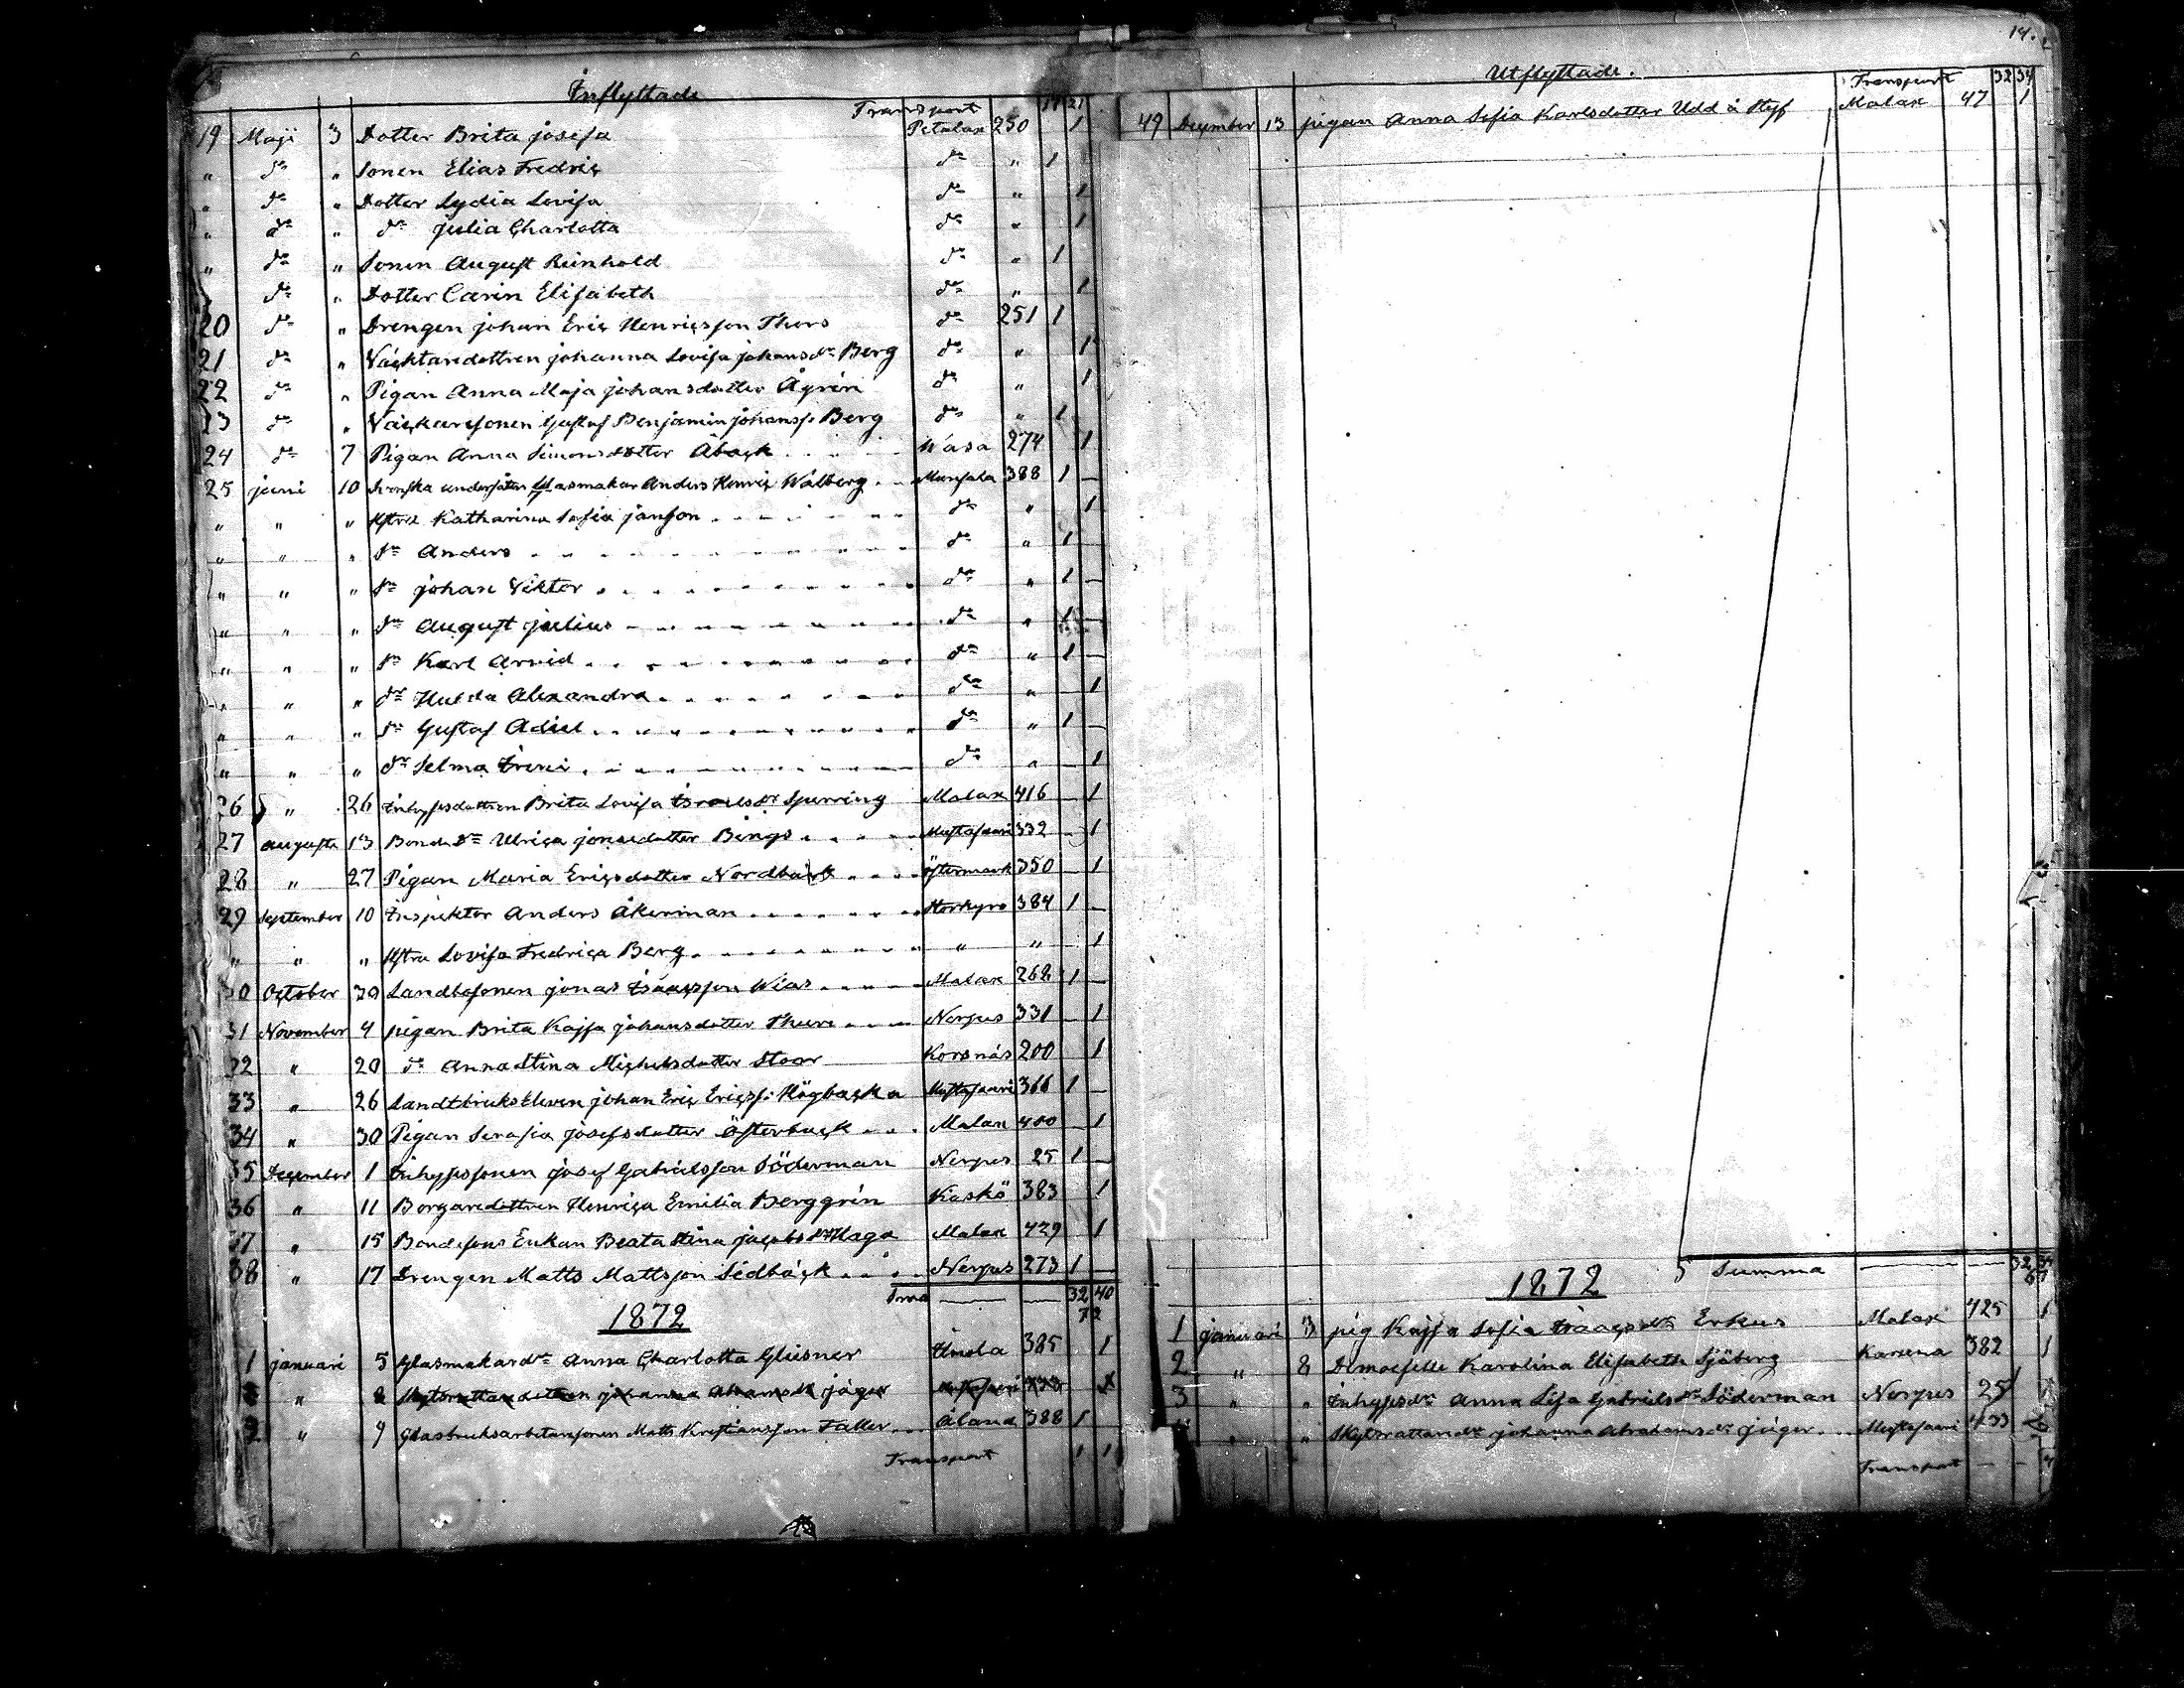 Inflyttade
Transport 17 21
19 Maji 3 Dotter Brita Josefa Petalax 250 1
" do " Sonen Elias Fredric do " 1
" do " Dotter Lydia Lovisa do " 1
" do " do Julia Charlotta do " 1
" do " Sonen August Reinhold do " 1
do " Dotter Carin Elisabeth do " 1
20 do " Drengen Johan Eric Henricsson Thors do 251 1
21 do " Väcktaredottren Johanna Lovisa Johansdr Berg do " 1
22 do " Pigan Anna Maja Johansdotter Ågrén do " 1
23 do " Gustaf Benjamin Johanss. Berg do " 1
24 do 7 Pigan Anna Simonsdotter Åback Wasa 274 1
25 Juni 10 Svenska undersåten Glasmakar Anders Henric Wålberg Munsala 388 1
" " " Hstru Katharina Sofia Janson do " 1
" " " do Anders do " 1
" " " do Johan Viktor do " 1
" " " do August Julius do " 1
" " " do Karl Arvid do " 1
" " " do Hulda Alexandra do " 1
" " " do Gustaf Adiel do " 1
" " " do Selma Irene do " 1
26 " 26 Inhysesdottren Brita Lovisa Israelsdr Sperring Malax 416 1
27 Augusti 13 Bonde dr Ulrica Jonsdotter Bengs Mustasaari 332 1
28 " 27 Pigan Maria Ericsdotter Nordback Östermark 350 1
29 September 10 Inspektor Anders Åkerman Storkyro 384 1
" " " Hstru Lovisa Fredrica Berg " " 1
30 October 30 Landbosonen Jonas Isaacsson Wias Malax 268 1
31 November 4 pigan Brita Kajsa Johansdotter Thure Nerpes 331 1
32 " 20 do Anna Stina Michelsdotter Storr Korsnäs 200 1
33 " 26 Landtbruks Eleven Johan Eric Ericss: Högbacka Mustasaari 366 1
34 " 30 Pigan Serafia Josefsdotter Österback Malax 400 1
35 December 1 Inhysessonen Josef Gabrielsson Söderman Nerpes 25 1
36 " 11 Borgaredottren Henrica Emilia Berggrén Kaskö 383 1
37 " 15 Bondesons Enkan Beata Stina Jacobsdr Haga Malax 429 1
38 " 17 Drengen Matts Mattsson Sedbäck Nerpes 273 1
Sma 32 40
72
1872
1 Januari 5 Glasmakardr Anna Charlotta Glisner Urdala 385 1
" 8 Johanna Abramsdr Jäger Mustasaari 433 1
2 " 9 Glasbruksarbetaresonen Matts Kristiansson Faller Åland 388 1
Transport 1 1
14.
Utflyttade.
Transport 32 34
49 December 13 pigan Anna Sofia Karlsdotter Udd å Malax 47 1
Summa 32 35
67
1872
1 Januari 3 pig Kajsa Sofia Isaacsdr Erkus Malax 425 1
2 " 8 Demoiselle Karolina Elisabeth Sjöberg 382 1
3 " " Inhysesdr Anna Lisa Gabrielsdr Söderman Nerpes 25 1
" " Johanna Abrahamsdr Jäger Mustasaari 433
Transport